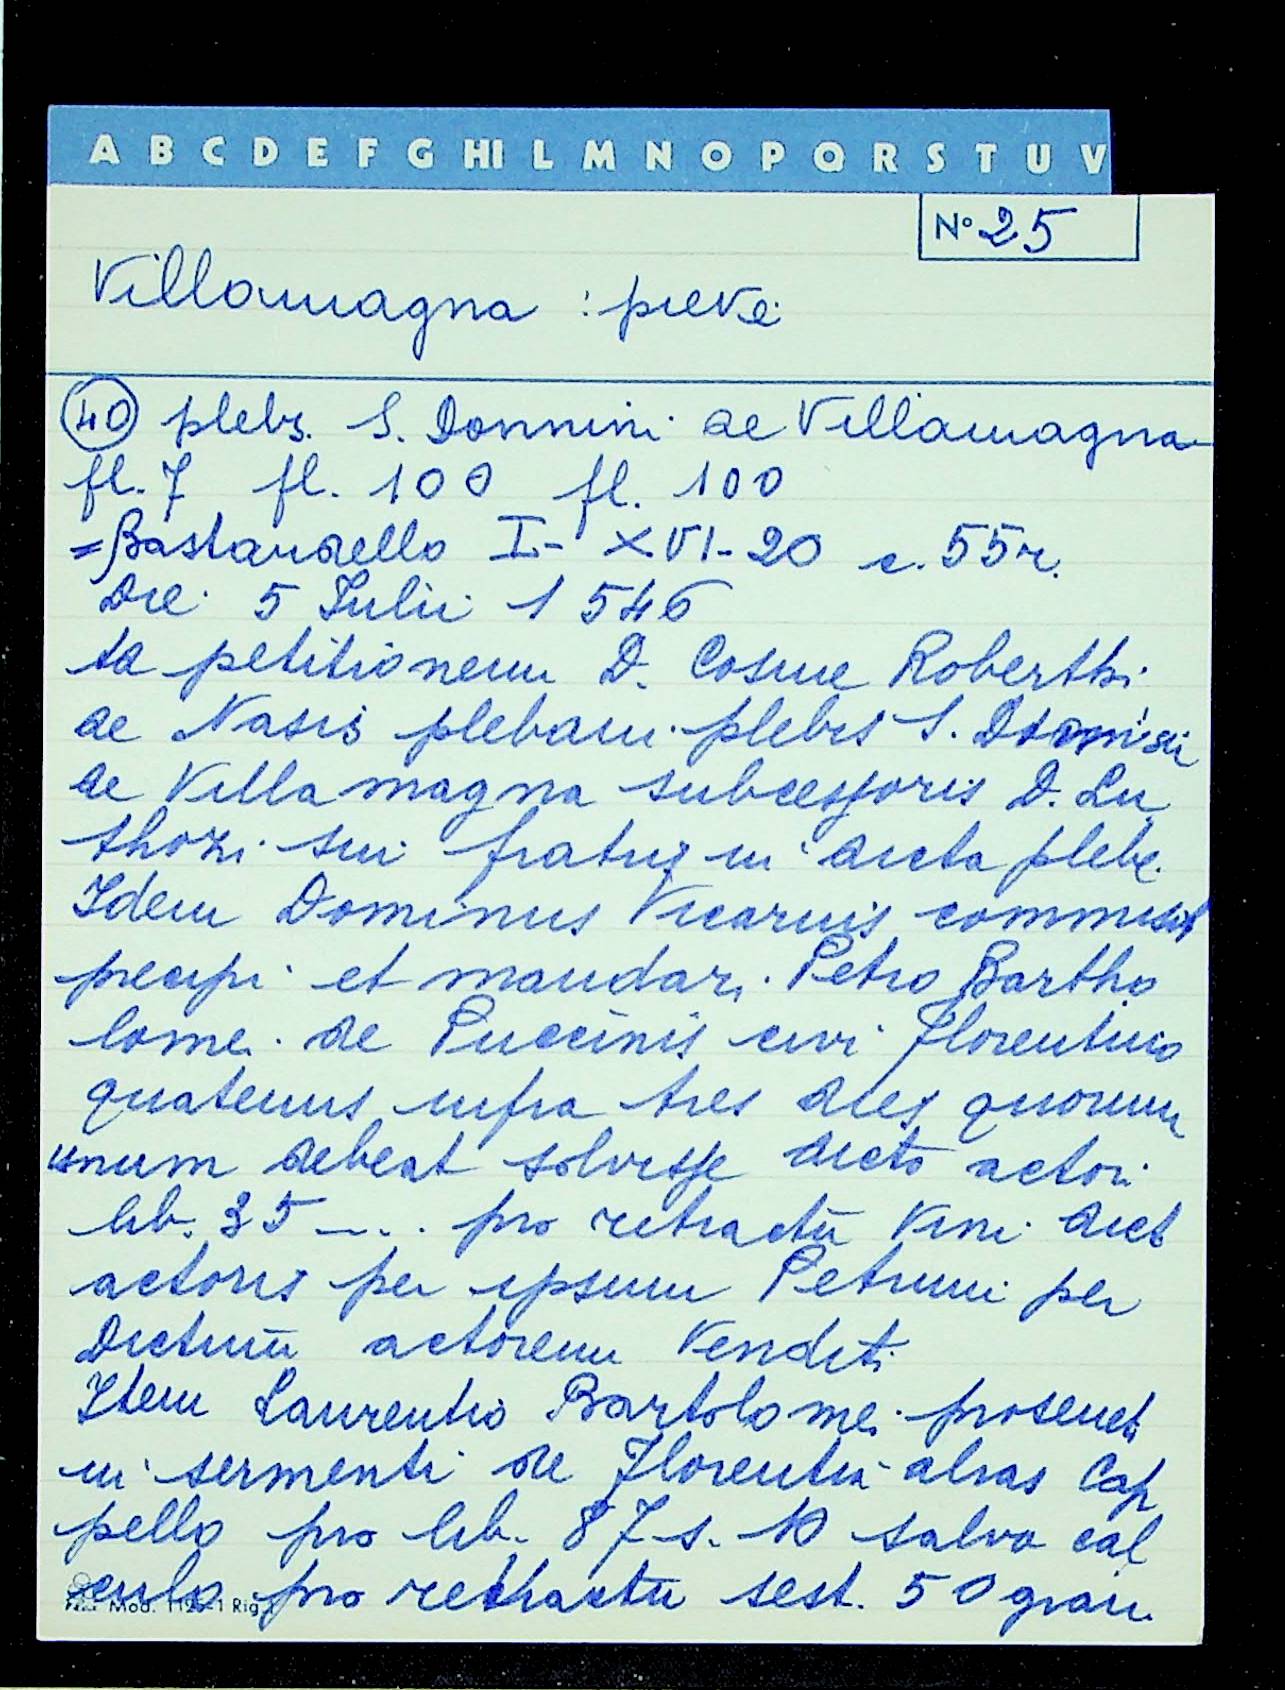 A B C D E F G HI L M N O P Q R S T U V
N° 25
Villamagna : pieve
40 plebs. S. Donnini de Villamagna
fl. 7 fl. 100 fl. 100
= Bastardello I - XVI - 20 c. 55r.
Die 5 Iulii 1546
ta petitionem D. Cosme Roberthi
de Nasis plebani plebis S. Donnini
de Villamagna subcessoris D. Lu
thozi sui fratris in dicta plebe.
Idem Dominus Vicarius commisit
precipi et mandari Petro Bartho
lomei de Puccinis civi florentino
quatenus infra tres dies quorum
unum debeat solvisse dicto actori
lib. 35 - . . pro retractu vini dict
actoris per ipsum Petrum per
Dictum actorem venditi
Item Laurentio Bartolomei prosenet
in sermenti de florentia alias Cap
pello pro lib. 87 s. 10 salvo cal
culo pro retractu sest. 50 grani
Mod. 1125-1 Rig